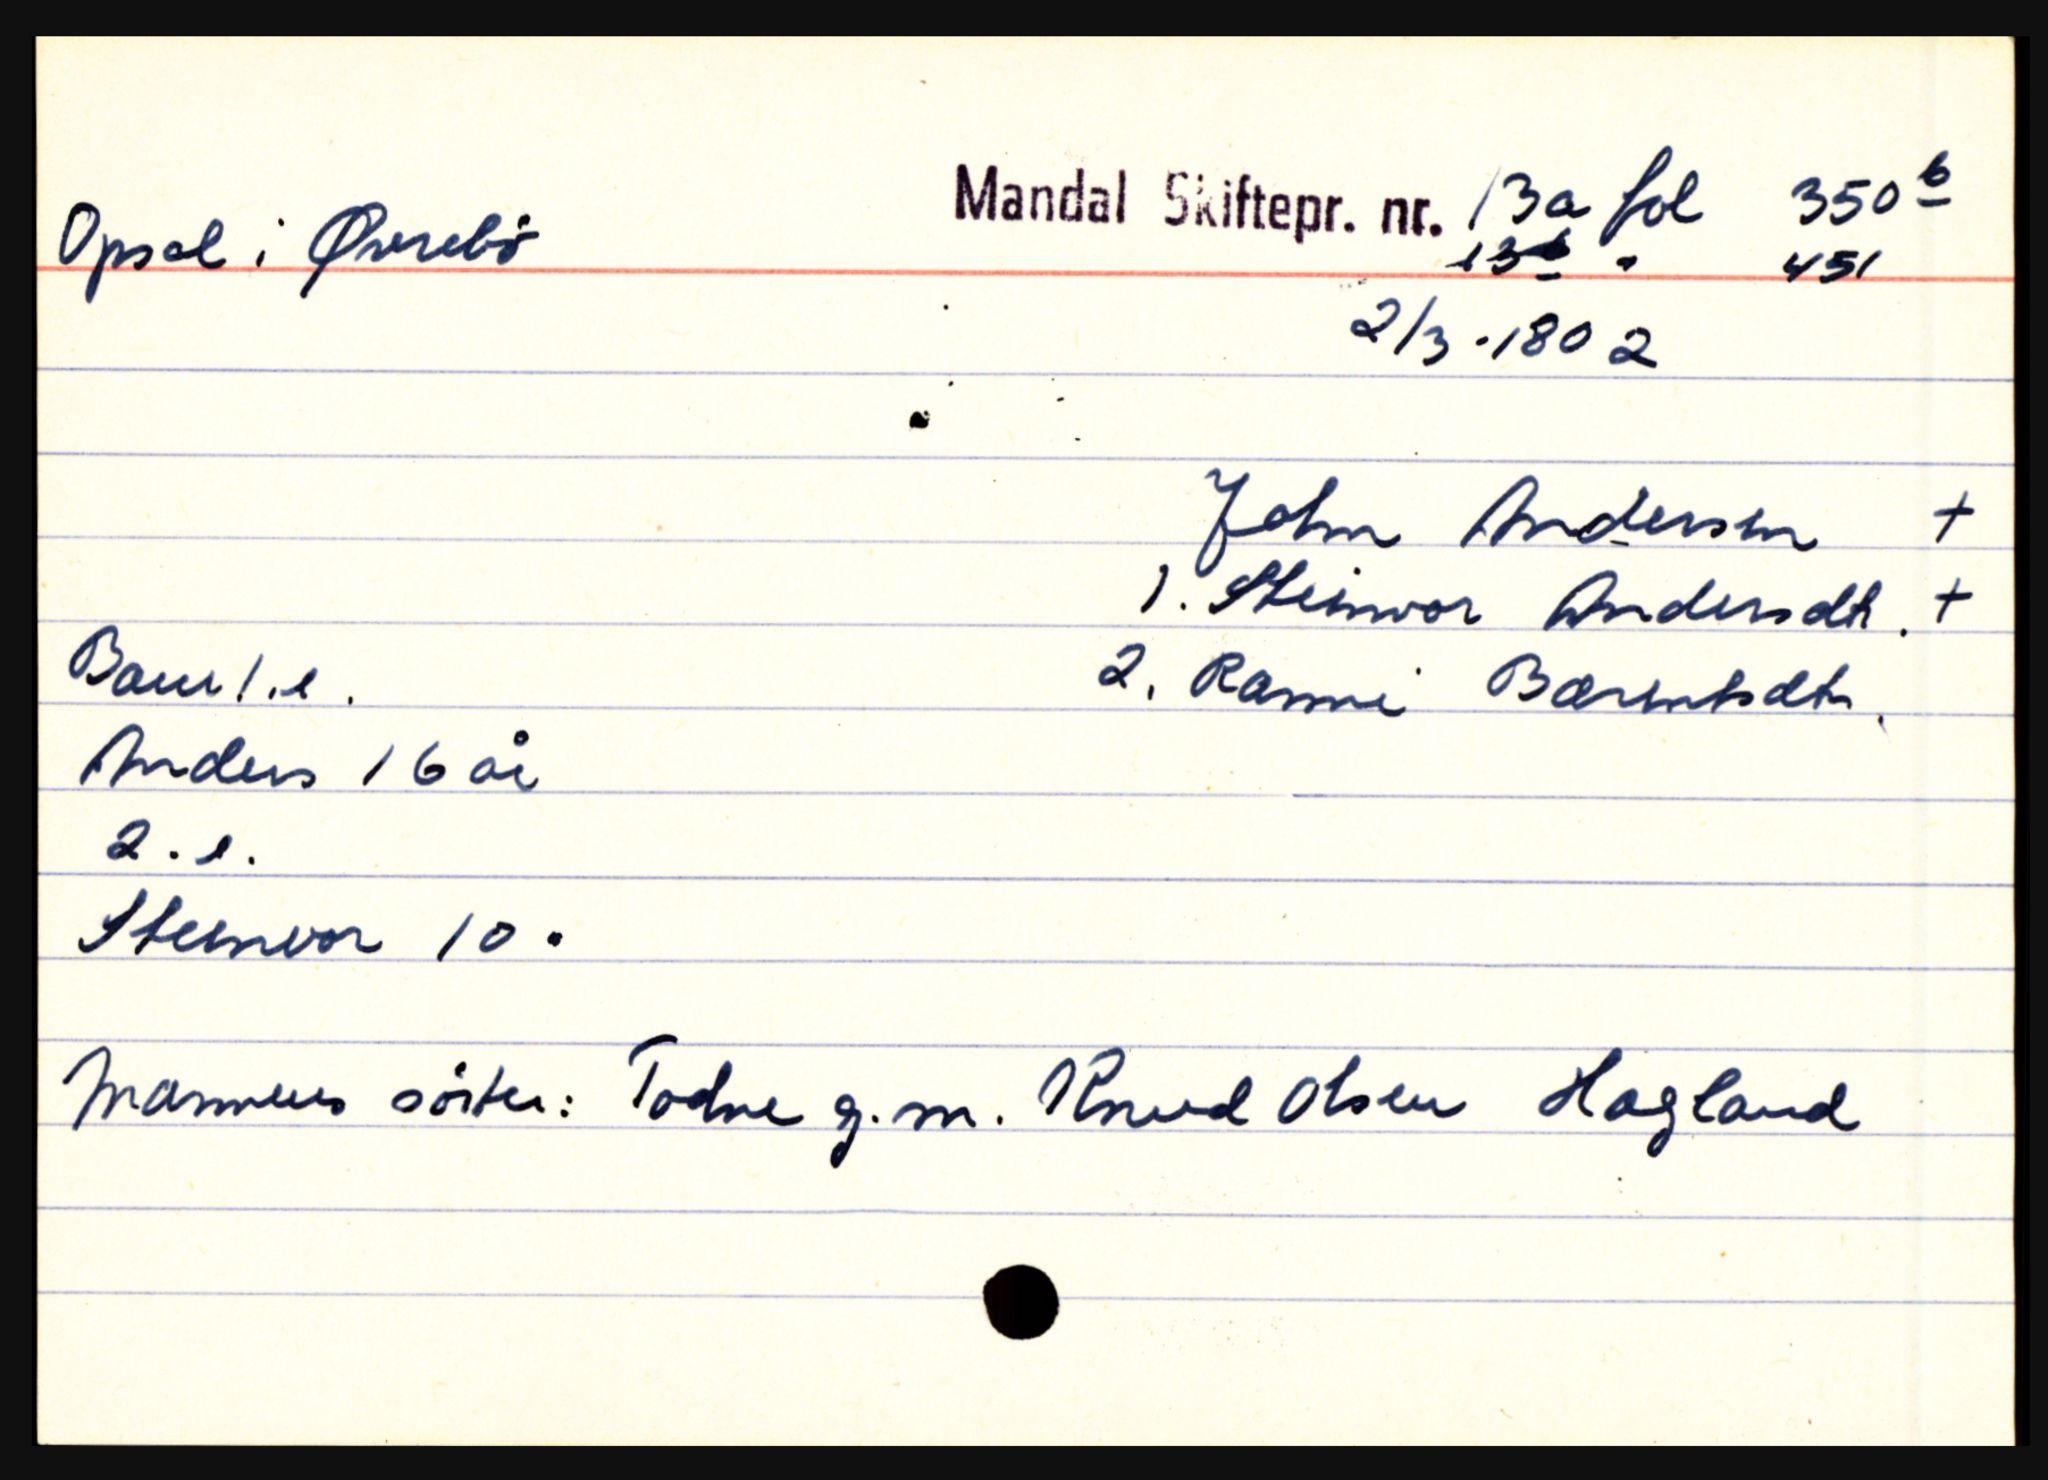 Mandal Skiftepr. nr. 13a fol 350 b
Opsal i Øverebö
13 b " 451
2/3 - 1802
John Andersen +
1. Steinvor Andersdtr. +
Barn 1.e. 2. Ranni Barentsdtr.
Anders 16 år
2.e.
Steinvor 10 "
Mannens söster: Todne g.m. Knud Olsen Hagland